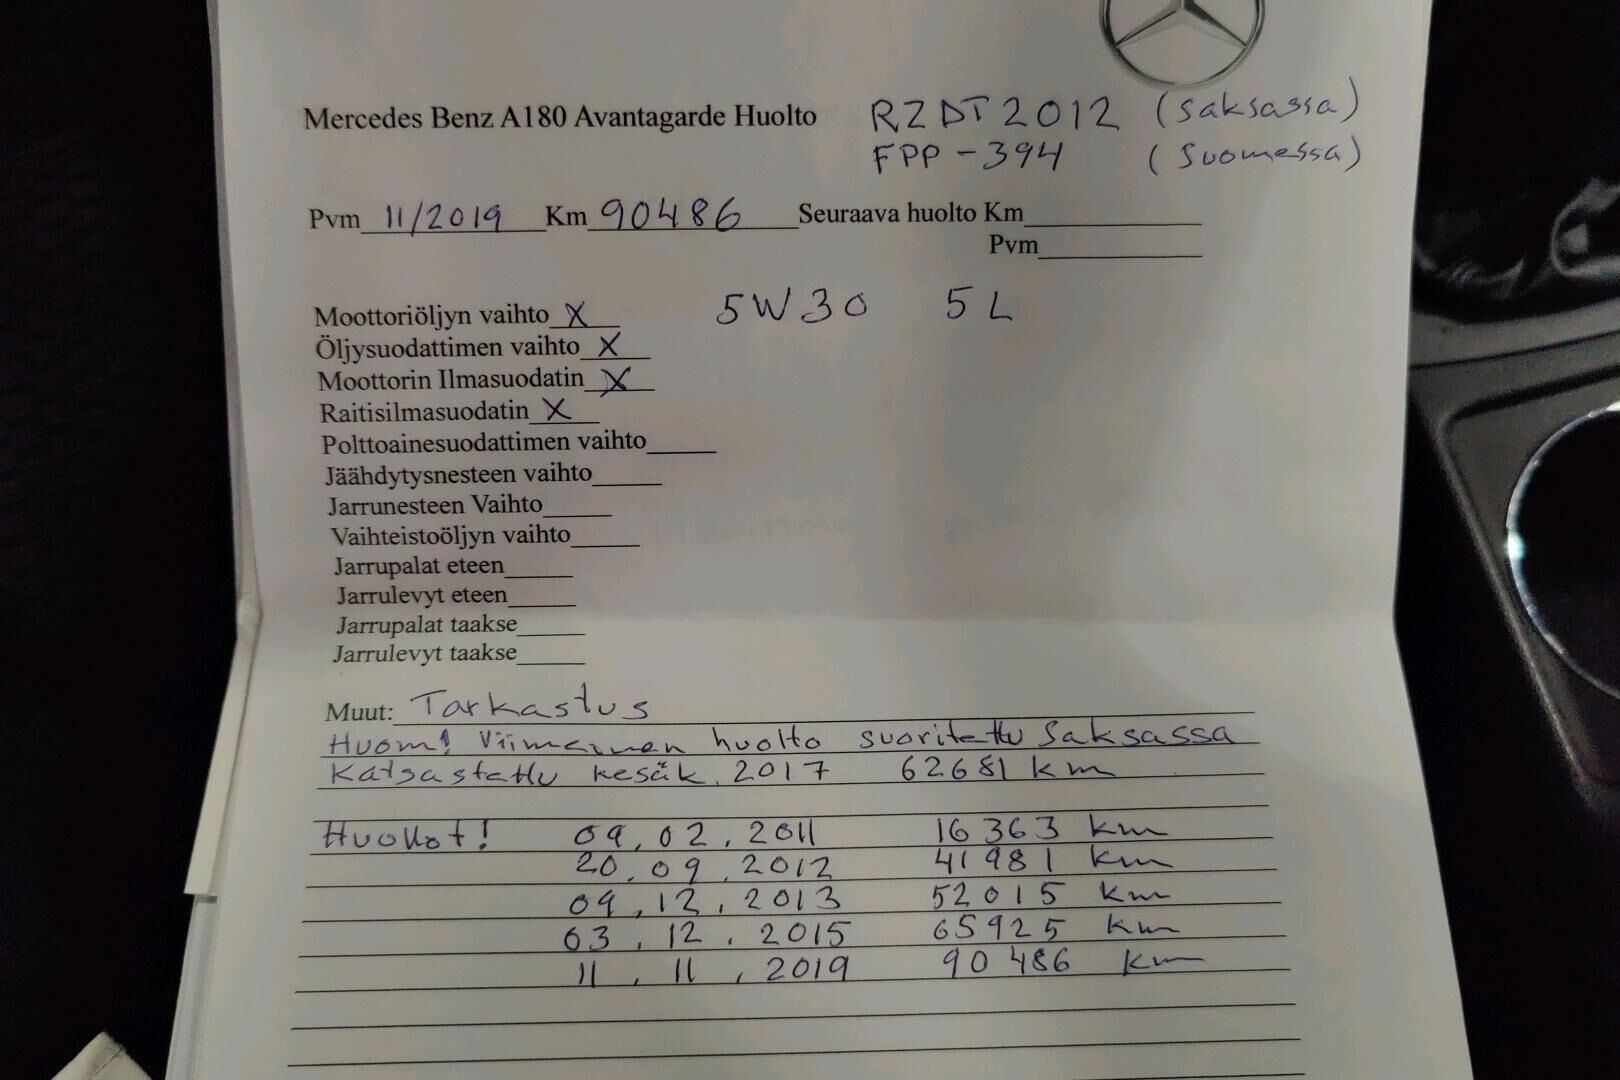 Mercedes Benz A180 Avantagarde Huolto RZ DT 2012 (saksassa)
FPP-394 (Suomessa)
Pvm 11/2019 Km 90486 Seuraava huolto Km
Pvm
Moottoriöljyn vaihto X 5W30 5L
Öljysuodattimen vaihto X
Moottorin Ilmasuodatin X
Raitisilmasuodatin X
Polttoainesuodattimen vaihto
Jäähdytysnesteen vaihto
Jarrunesteen Vaihto
Vaihteistoöljyn vaihto
Jarrupalat eteen
Jarrulevyt eteen
Jarrupalat taakse
Jarrulevyt taakse
Muut: Tarkastus
Huom! Viimeinen huolto suoritettu Saksassa
Katsastettu kesäk. 2017 62681 km
Huollot! 09.02.2011 16 363 km
20.09.2012 41 981 km
09.12.2013 52015 km
03.12.2015 65925 km
11.11.2019 90 486 km